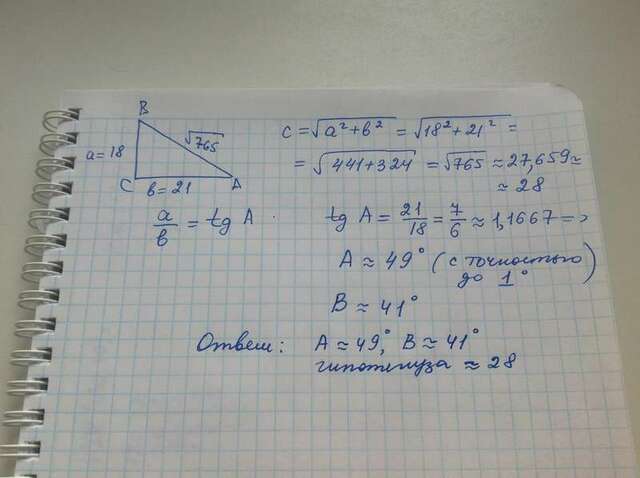 B
a=18
√765
C
b=21
A
a/b = tg A
c = √(a²+b²) = √(18²+21²) =
= √(441+324) = √765 ≈ 27,659 ≈
≈ 28
tg A = 21/18 = 7/6 ≈ 1,1667 =>
A ≈ 49° (с точностью
до 1°)
B ≈ 41°
Ответ: A ≈ 49°, B ≈ 41°
гипотенуза ≈ 28